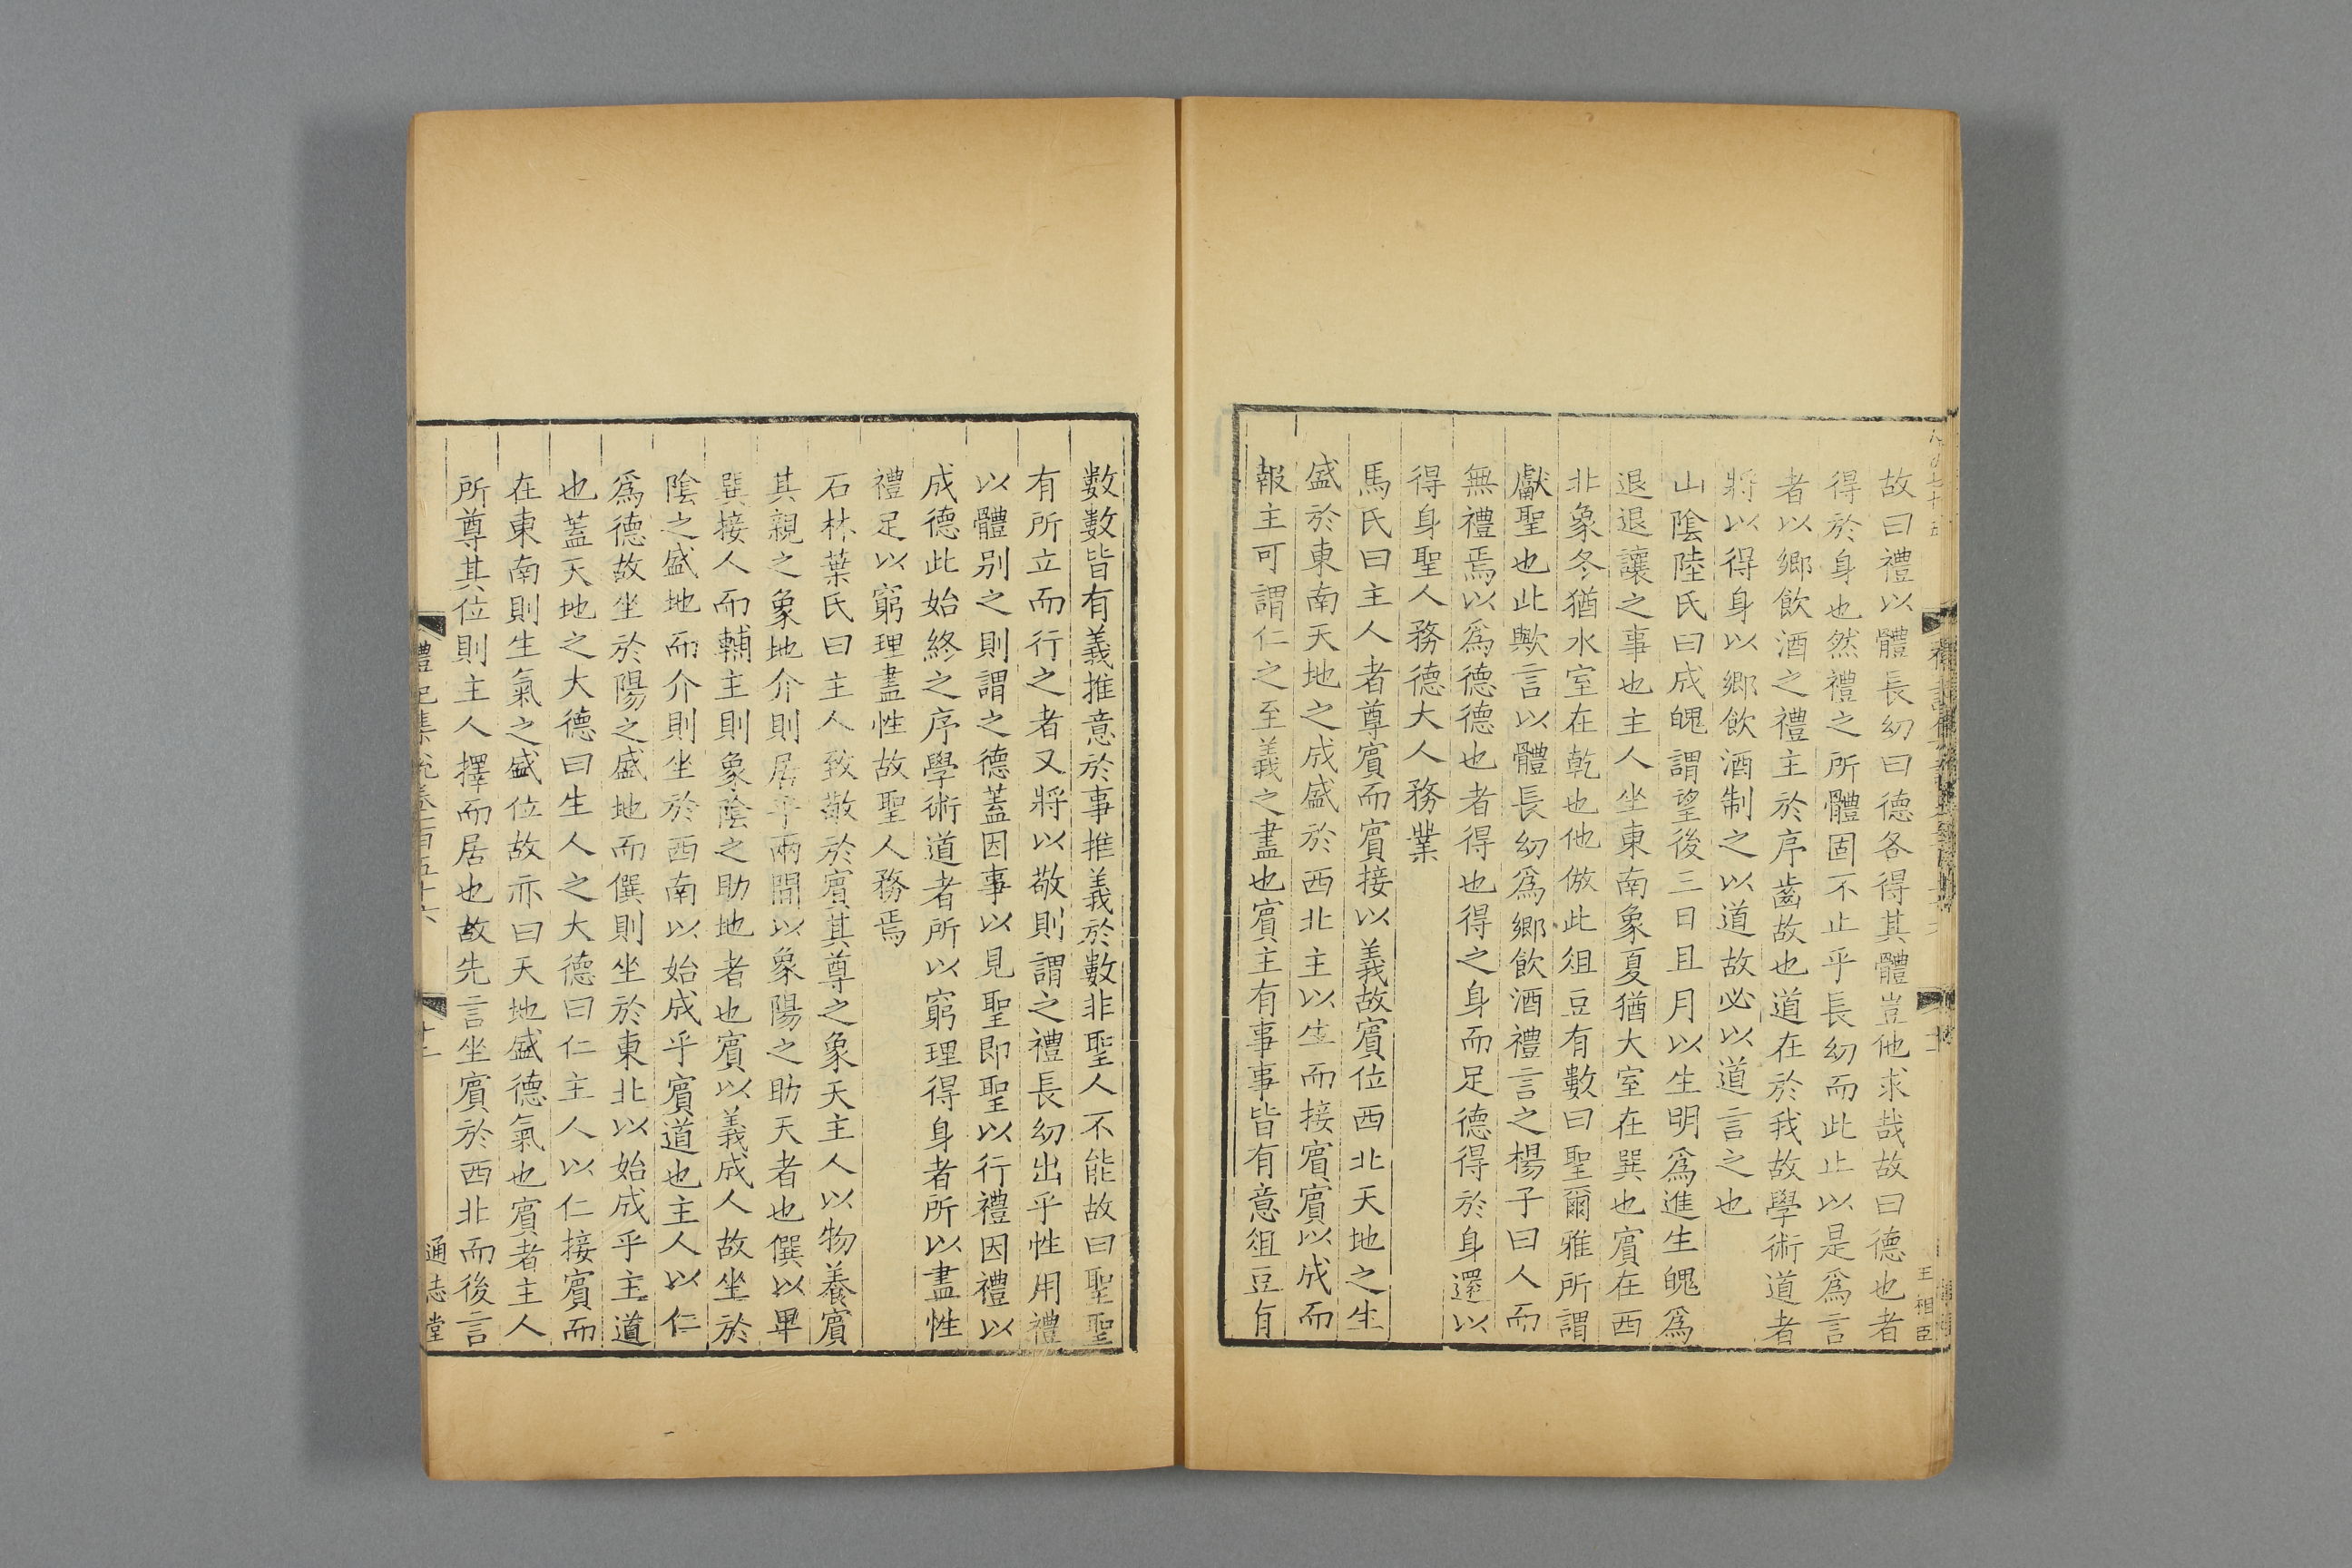 故曰禮以體長幼曰德各得其體豈他求哉故曰德也者
得於身也然禮之所體固不止乎長幼而此止以是爲言
者以鄉飲酒之禮主於序齒故也道在於我故學術道者
將以得身以鄉飲酒制之以道故必以道言之也
山陰陸氏曰成魄謂望後三日且月以生明爲進生魄爲
退退讓之事也主人坐東南象夏猶大室在巽也賓在西
北象冬猶水室在乾也他倣此俎豆有數曰聖爾雅所謂
獻聖也此歟言以體長幼爲鄉飲酒禮言之楊子曰人而
無禮焉以爲德德也者得也得之身而足德得於身還以
得身聖人務德大人務業
馬氏曰主人者尊賓而賓接以義故賓位西北天地之生
盛於東南天地之成盛於西北主以生而接賓賓以成而
報主可謂仁之至義之盡也賓主有事事皆有意俎豆有
王相臣
數數皆有義推意於事推義於數非聖人不能故曰聖聖
有所立而行之者又將以敬則謂之禮長幼出乎性用禮
以體別之則謂之德蓋因事以見聖即聖以行禮因禮以
成德此始終之序學術道者所以窮理得身者所以盡性
禮足以窮理盡性故聖人務焉
石林葉氏曰主人致敬於賓其尊之象天主人以物養賓
其親之象地介則居乎兩間以象陽之助天者也僎以畢
巽接人而輔主則象陰之助地者也賓以義成人故坐於
陰之盛地而介則坐於西南以始成乎賓道也主人以仁
爲德故坐於陽之盛地而僎則坐於東北以始成乎主道
也蓋天地之大德曰生人之大德曰仁主人以仁接賓而
在東南則生氣之盛位故亦曰天地盛德氣也賓者主人
所尊其位則主人擇而居也故先言坐賓於西北而後言
禮記集說卷一百五十六
十二
通志堂